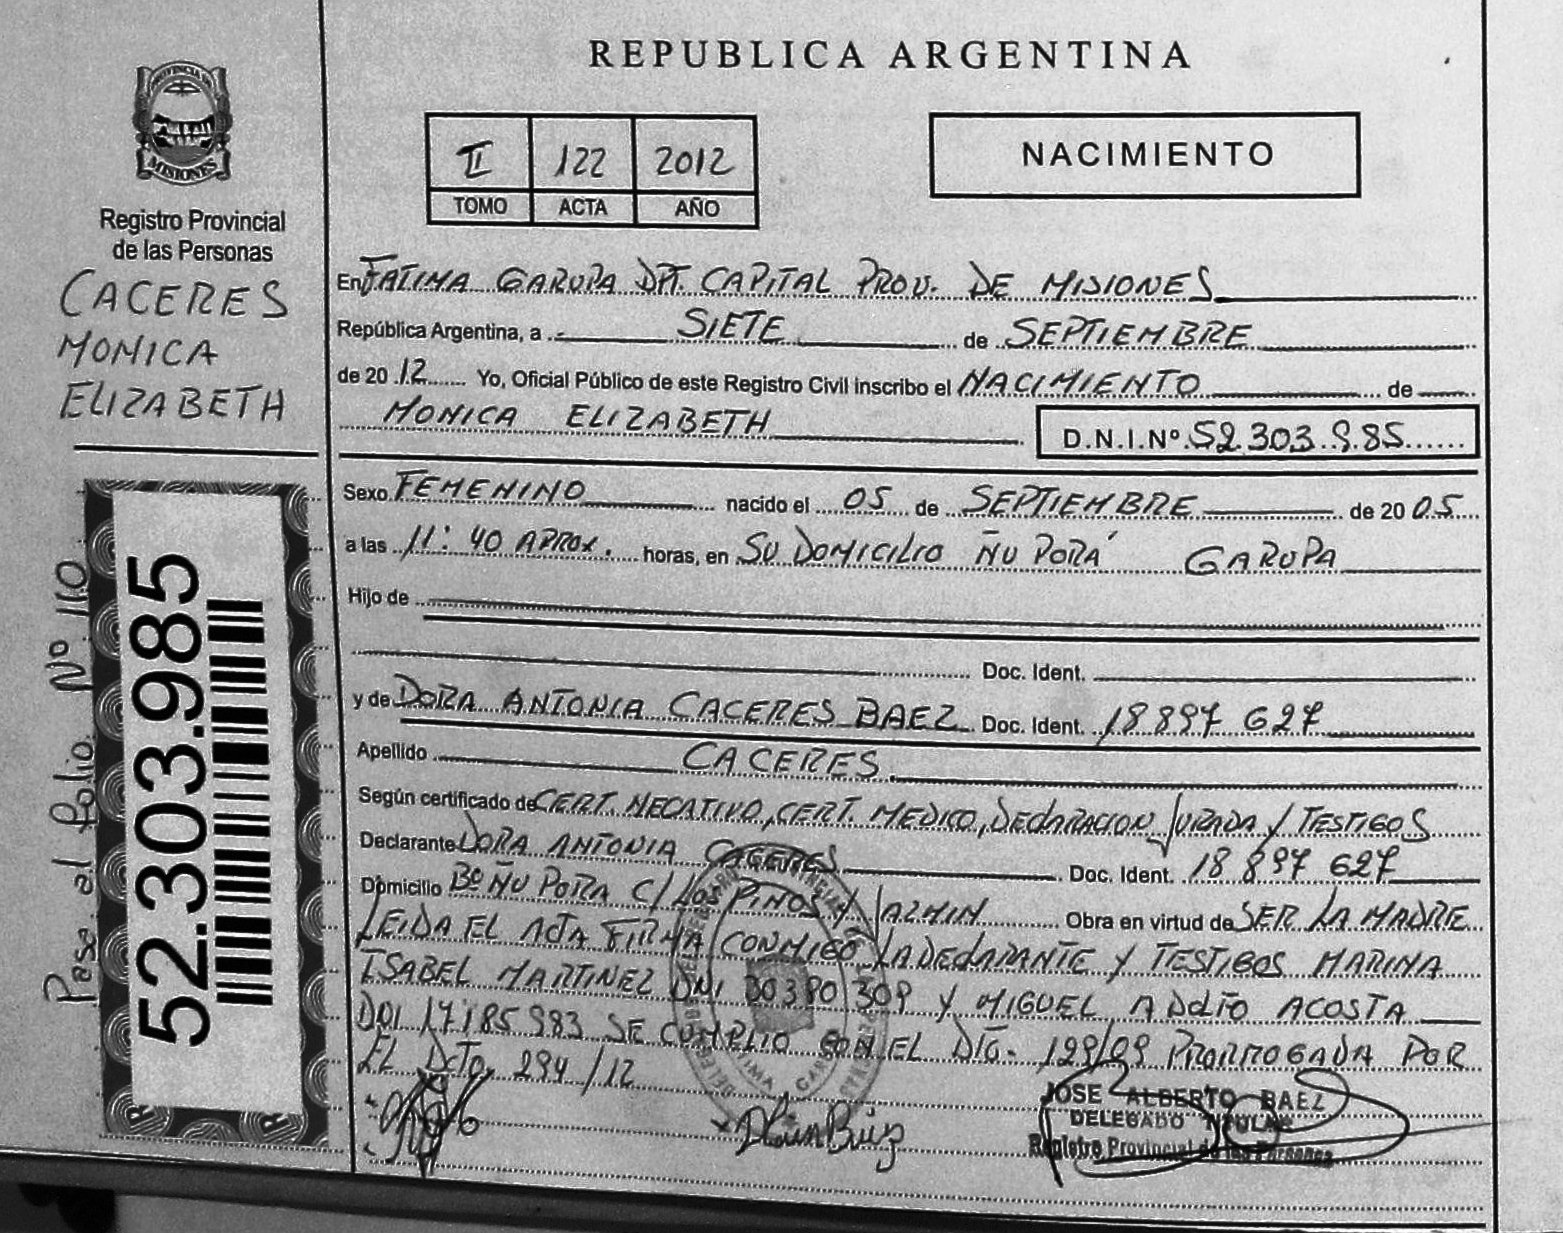 REPUBLICA ARGENTINA
PROVINCIA DE
MISIONES
Registro Provincial
de las Personas
CACERES
MONICA
ELIZABETH
II 122 2012
TOMO ACTA AÑO
NACIMIENTO
En FATIMA GARUPA DPT. CAPITAL PROV. DE MISIONES
República Argentina, a SIETE de SEPTIEMBRE
de 2012 Yo, Oficial Público de este Registro Civil inscribo el NACIMIENTO de
MONICA ELIZABETH D.N.I.Nº 52.303.985
Sexo FEMENINO nacido el 05 de SEPTIEMBRE de 2005
a las 11:40 APROX. horas, en SU DOMICILIO ÑU PORÁ GARUPA
Hijo de
Doc. Ident.
y de DORA ANTONIA CACERES BAEZ Doc. Ident. 18897 627
Apellido CACERES
Según certificado de CERT. NEGATIVO, CERT. MEDICO, DECLARACION JURADA Y TESTIGOS
Declarante DORA ANTONIA CACERES Doc. Ident. 18 897 627
Domicilio Bº ÑU PORA C/ LOS PINOS Y JAZMIN Obra en virtud de SER LA MADRE
LEIDA EL ACTA FIRMA CONMIGO LA DECLARANTE Y TESTIGOS MARINA
ISABEL MARTINEZ DNI 30380 309 Y MIGUEL ADOLFO ACOSTA
DNI 17185 983 SE CUMPLIO CON EL DTO. 129/09 PRORROGADA POR
EL DCTO. 294/12
JOSE ALBERTO BAEZ
DELEGADO TITULAR
Registro Provincial de las Personas
52.303.985
Pase al Folio Nº 110